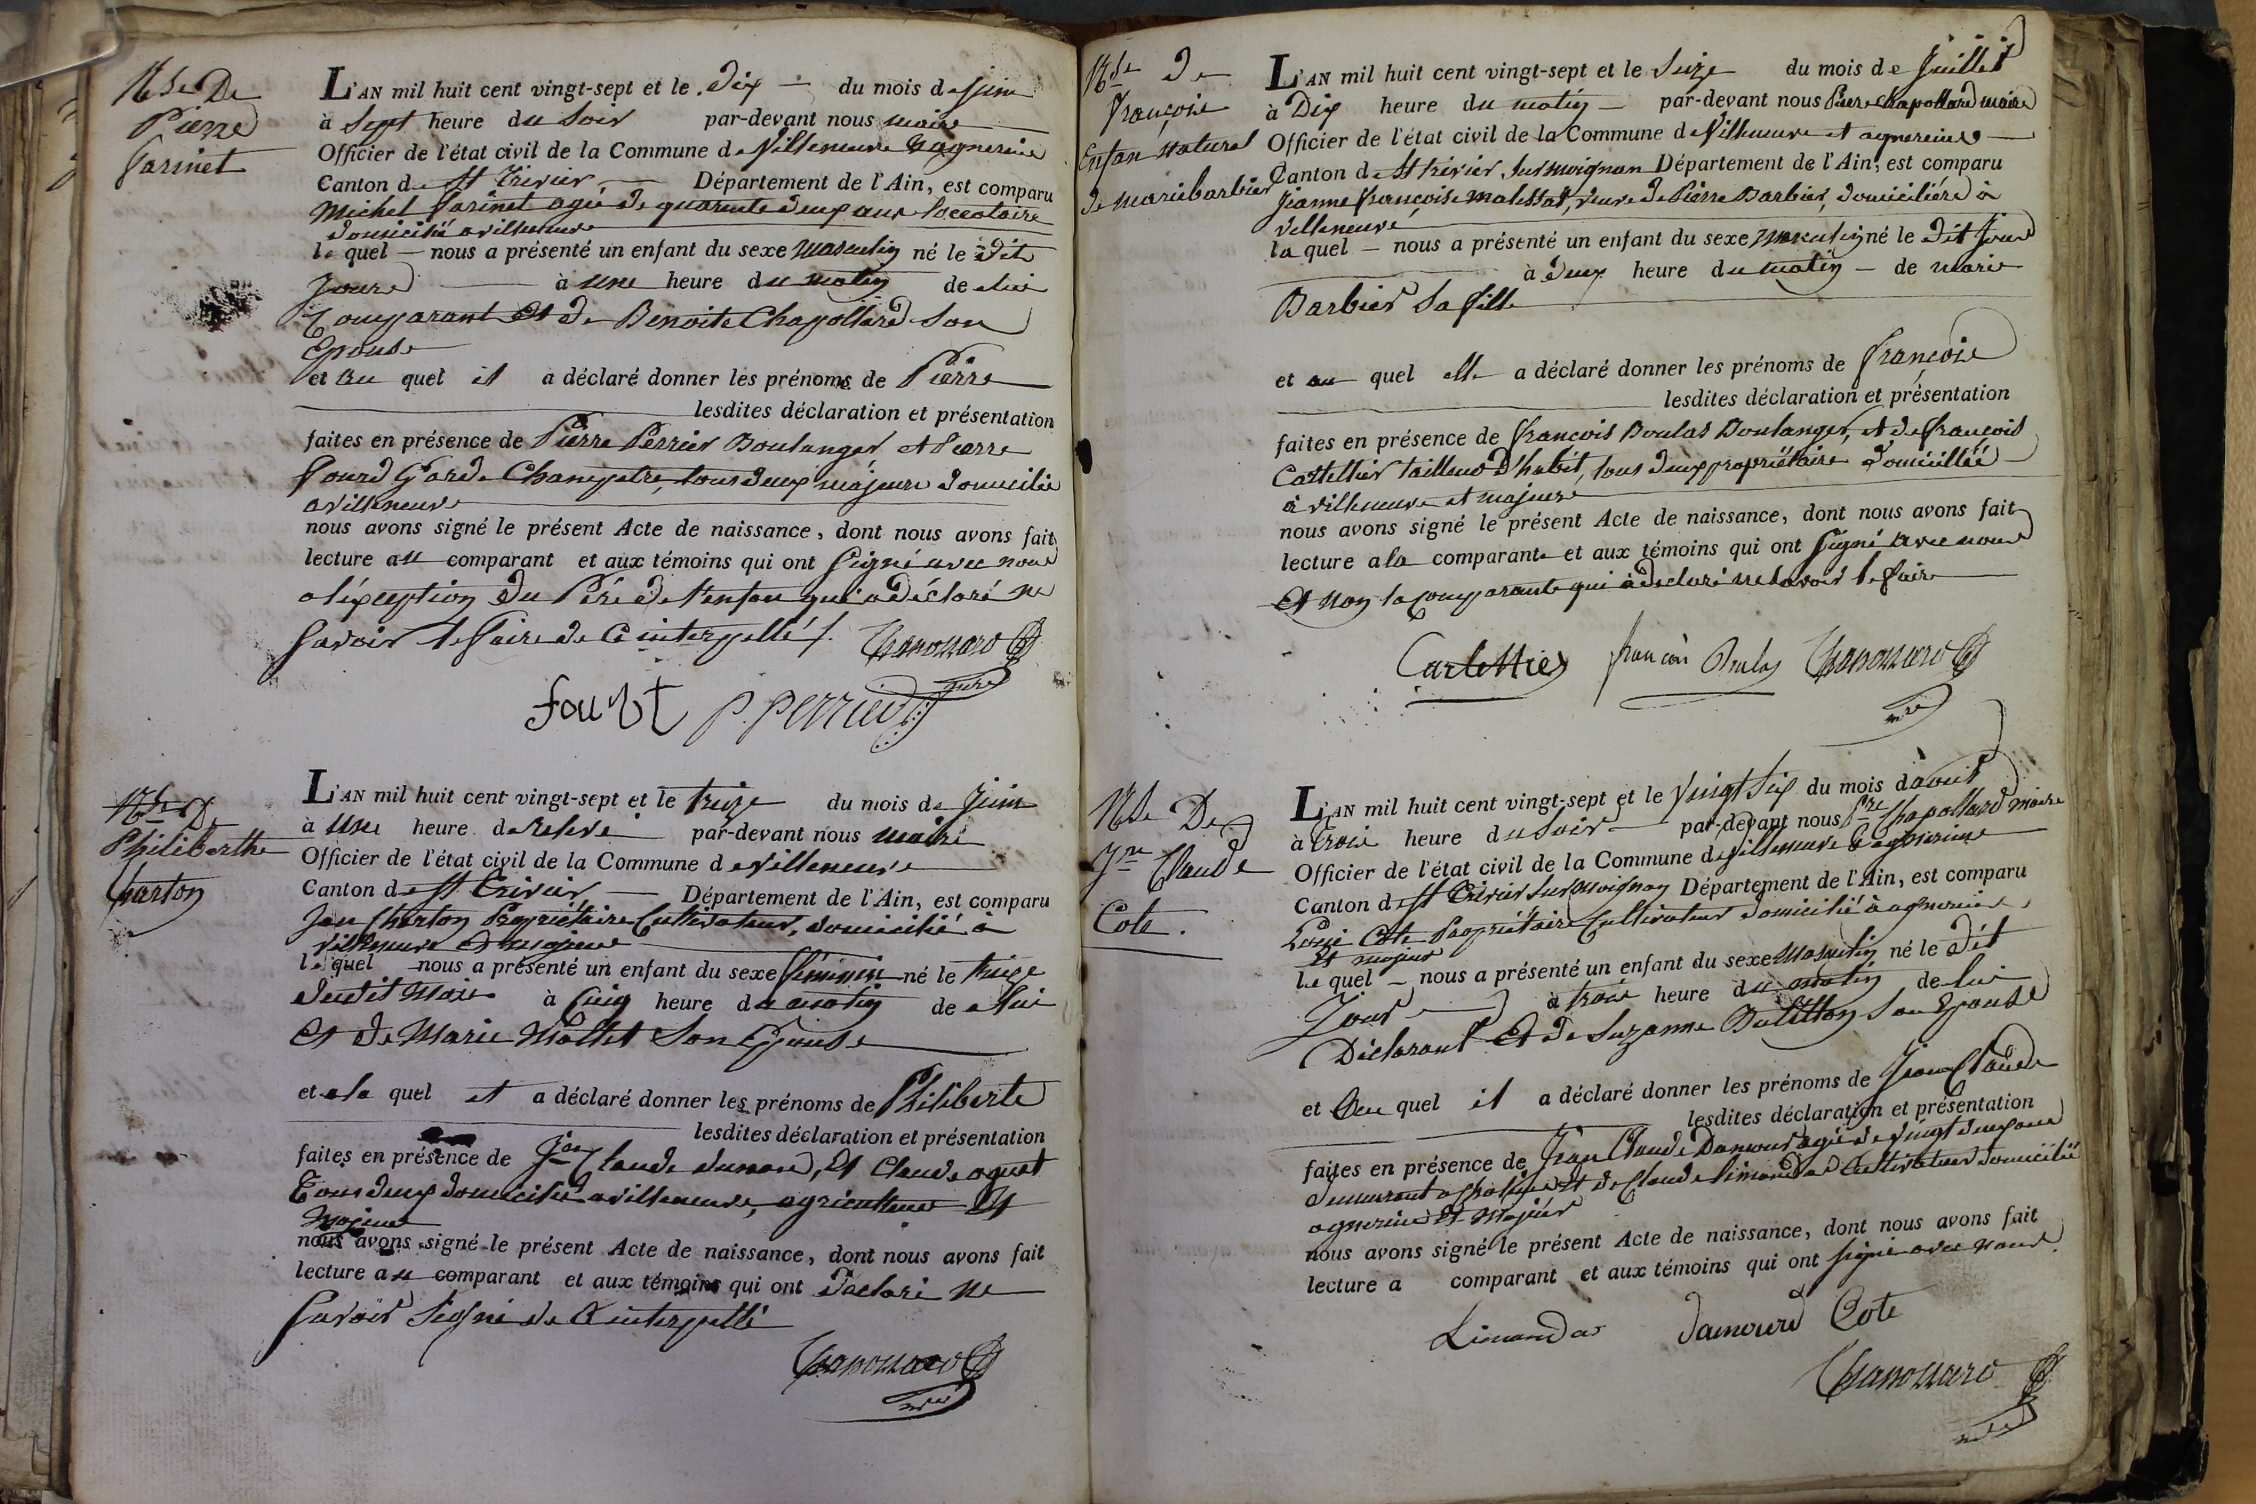 Nce De
Pierre
Farinet
L'AN mil huit cent vingt-sept et le Dix du mois de juin
à Sept heure du Soir par-devant nous maire
Officier de l'état civil de la Commune de Villeneuve & agnereins
Canton de St Trivier Département de l'Ain, est comparu
Michel Farinet agé de quarente deux ans Loccataire
domicilié a villeneuve
le quel nous a présenté un enfant du sexe masculin né le dit
Jour à une heure du matin de lui
Comparant Et de Benoite Chapollard Son
Epouse
et au quel il a déclaré donner les prénoms de Pierre
lesdites déclaration et présentation
faites en présence de Pierre Perrier Boulanger et Pierre
Garde Champetre, tous deux majeurs domicilié
a villeneuve
nous avons signé le présent Acte de naissance, dont nous avons fait
lecture au comparant et aux témoins qui ont Signé avec nous
a l'éxception Du Péré de l'enfan qui a déclaré ne
Savoir le faire de Ce interpellé /.
Chapollard
P. Perrier
mre
Nce De
Philiberthe
Charton
L'AN mil huit cent vingt-sept et le treize du mois de Juin
à Une heure de relevé par-devant nous maire
Officier de l'état civil de la Commune de villeneuve
Canton de St Trivier Département de l'Ain, est comparu
Jean Charton Propriétaire Cultivateur, domicilié à
villeneuve et majeur
le quel nous a présenté un enfant du sexe féminin né le treize
dudit mois à Cinq heure du matin de lui
Et de Marie Mollet Son Epouse
et a la quel il a déclaré donner les prénoms de Philiberte
lesdites déclaration et présentation
faites en présence de Jean Claude dumond, et Claude
Tous deux domicilié a villeneuve, agriculteur Et
majeur
nous avons signé le présent Acte de naissance, dont nous avons fait
lecture au comparant et aux témoins qui ont déclaré ne
Savoir Signé de Ce interpellé
Chapollard
mre
Nce De
françois
Enfan Naturel
de marie barbier
L'AN mil huit cent vingt-sept et le Seize du mois de Juillet
à Dix heure du matin par-devant nous Pierre Chapollard maire
Officier de l'état civil de la Commune de Villeneuve et agnereins
Canton de St trivier Sur moignan Département de l'Ain, est comparu
Jeanne françoise malessat, veuve de Pierre Barbier, domiciliére à
villeneuve
la quel nous a présenté un enfant du sexe masculin né le dit Jour
à deux heure du matin de marie
Barbier Sa fille
et au quel elle a déclaré donner les prénoms de françois
lesdites déclaration et présentation
faites en présence de françois Boulas Boulanger, et de françois
Cartellier tailleur d'habit, tous deux propriétaire domicilléé
à villeneuve et majeurs
nous avons signé le présent Acte de naissance, dont nous avons fait
lecture a la comparante et aux témoins qui ont Signé avec nous
Et non la Comparante qui à déclaré ne Savoir le faire
Cartellier françois Boulas Chapollard
mre
Nce De
Jn Claude
Cote.
L'AN mil huit cent vingt-sept et le Vingt Six du mois d'aout
à Trois heure du Soir par-devant nous Pre Chapollard maire
Officier de l'état civil de la Commune de Villeneuve & agnereins
Canton de St Trivier Sur moignan Département de l'Ain, est comparu
Cote Propriétaire Cultivateur domicilié à agnereins,
Et majeur
le quel nous a présenté un enfant du sexe Masculin né le dit
Jour à trois heure du matin de lui
Déclarant Et de Suzanne Son Epouse
et Au quel il a déclaré donner les prénoms de Jean Claude
lesdites déclaration et présentation
faites en présence de Jean Claude Damour agé de vingt deux ans
demeurant a et de Claude Limandas Cultivateur domicilié
agnereins Et Majeur
nous avons signé le présent Acte de naissance, dont nous avons fait
lecture a comparant et aux témoins qui ont Signé avec nous.
Limandas Damour Cote
Chapollard
mre